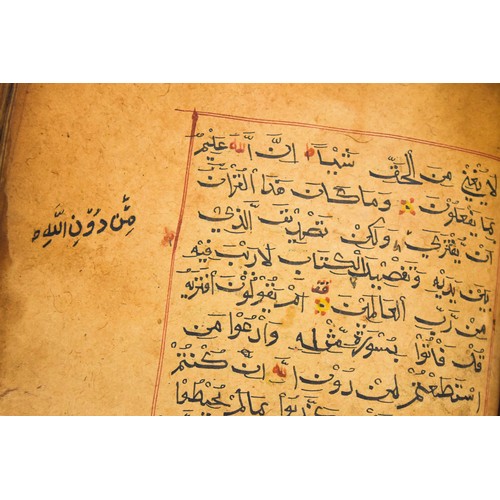 لا يغني من الحق شيئا ان الله عليم
بما يفعلون وما كان هذا القرآن
ان يفترى ولكن تصديق الذي
بين يديه وتفصيل الكتاب لا ريب فيه
من رب العالمين ام يقولون افتريه
قد فاتوا بسورة مثله وادعوا من
استطعتم من دون الله ان كنتم
كذبوا بمالم يحيطوا
مِّن دُوْنِ اللهِ